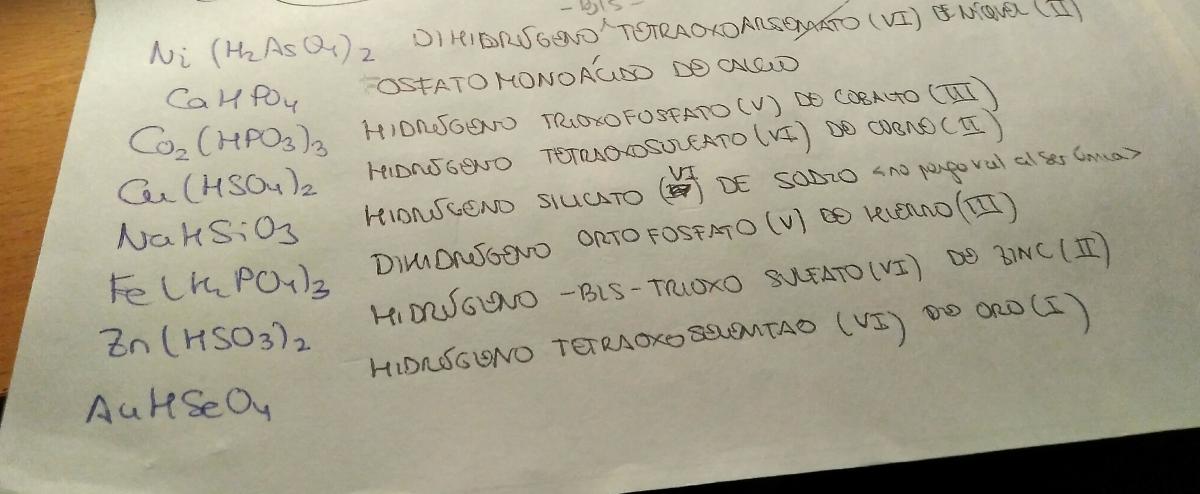 -BIS-
Ni(H2AsO4)2 DIHIDRÓGENO^TETRAOXOARSENIATO (VI) DE NÍQUEL (II)
CaHPO4 FOSFATO MONOÁCIDO DE CALCIO
Co2(HPO3)3 HIDRÓGENO TRIOXOFOSFATO (V) DE COBALTO (III)
Cu(HSO4)2 HIDRÓGENO TETRAOXOSULFATO (VI) DE COBRE (II)
NaHSiO3 HIDRÓGENO SILICATO (VI) DE SODIO <no pongo val al ser única>
Fe(H2PO4)3 DIHIDRÓGENO ORTOFOSFATO (V) DE HIERRO (III)
Zn(HSO3)2 HIDRÓGENO -BIS-TRIOXO SULFATO (VI) DE ZINC (II)
AuHSeO4 HIDRÓGENO TETRAOXOSELENTAO (VI) DE ORO (I)